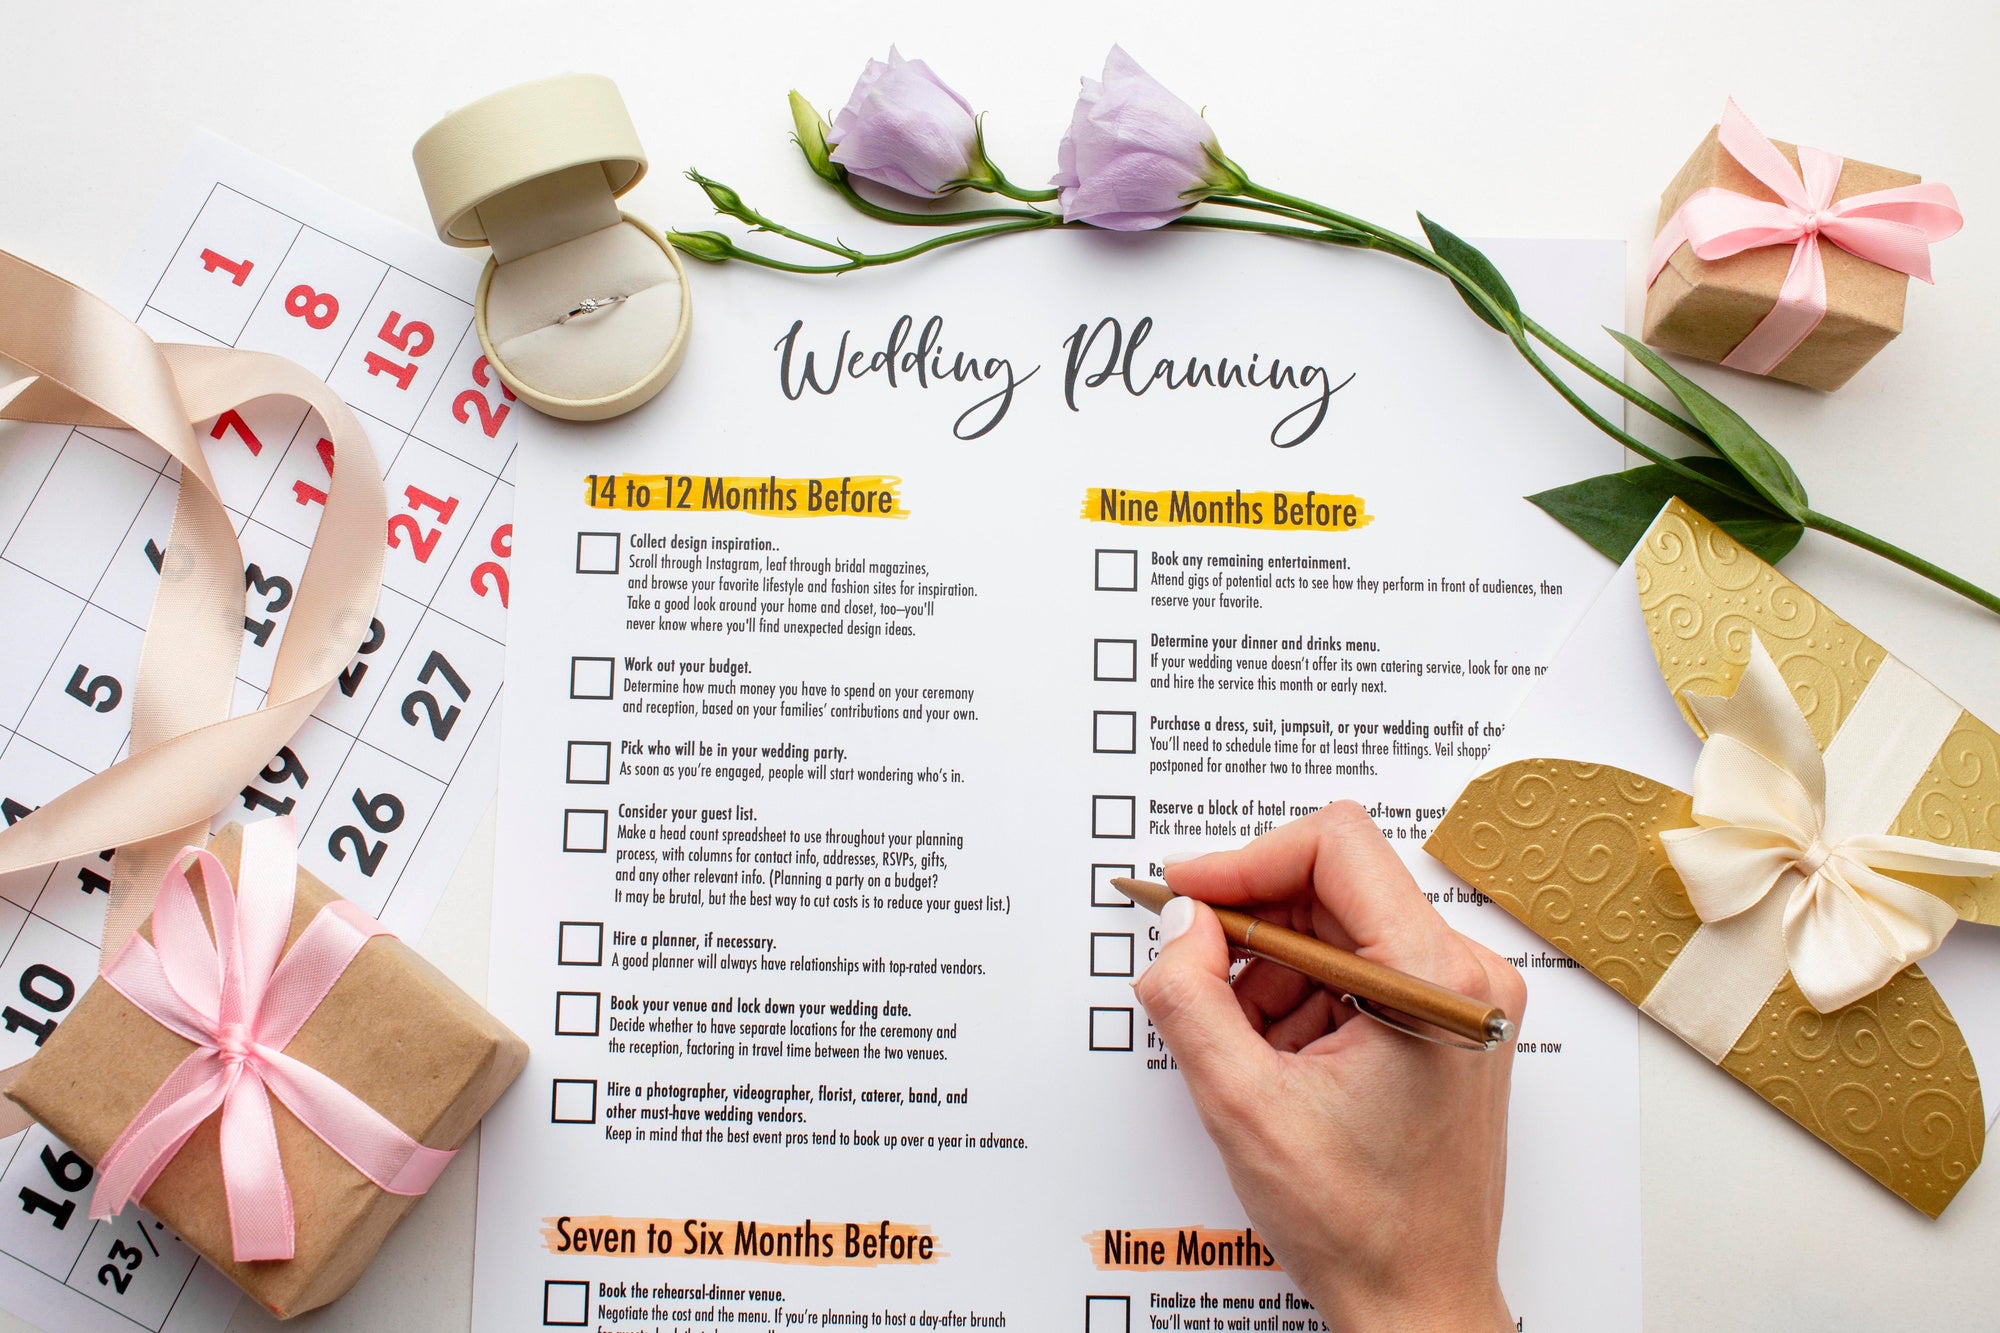 1 8 15 22
7 14 21 28
6 13 20 27
5 19 26
10
16
23/
Wedding Planning
14 to 12 Months Before
Collect design inspiration..
Scroll through Instagram, leaf through bridal magazines,
and browse your favorite lifestyle and fashion sites for inspiration.
Take a good look around your home and closet, too—you'll
never know where you'll find unexpected design ideas.
Work out your budget.
Determine how much money you have to spend on your ceremony
and reception, based on your families' contributions and your own.
Pick who will be in your wedding party.
As soon as you're engaged, people will start wondering who's in.
Consider your guest list.
Make a head count spreadsheet to use throughout your planning
process, with columns for contact info, addresses, RSVPs, gifts,
and any other relevant info. (Planning a party on a budget?
It may be brutal, but the best way to cut costs is to reduce your guest list.)
Hire a planner, if necessary.
A good planner will always have relationships with top-rated vendors.
Book your venue and lock down your wedding date.
Decide whether to have separate locations for the ceremony and
the reception, factoring in travel time between the two venues.
Hire a photographer, videographer, florist, caterer, band, and
other must-have wedding vendors.
Keep in mind that the best event pros tend to book up over a year in advance.
Seven to Six Months Before
Book the rehearsal-dinner venue.
Negotiate the cost and the menu. If you're planning to host a day-after brunch
Nine Months Before
Book any remaining entertainment.
Attend gigs of potential acts to see how they perform in front of audiences, then
reserve your favorite.
Determine your dinner and drinks menu.
If your wedding venue doesn't offer its own catering service, look for one now
and hire the service this month or early next.
Purchase a dress, suit, jumpsuit, or your wedding outfit of
You'll need to schedule time for at least three fittings. Veil
postponed for another two to three months.
Reserve a block of hotel rooms of-town
Pick three hotels at to the
of
travel
If one now
and
Nine Months
Finalize the menu and
You'll want to wait until now to